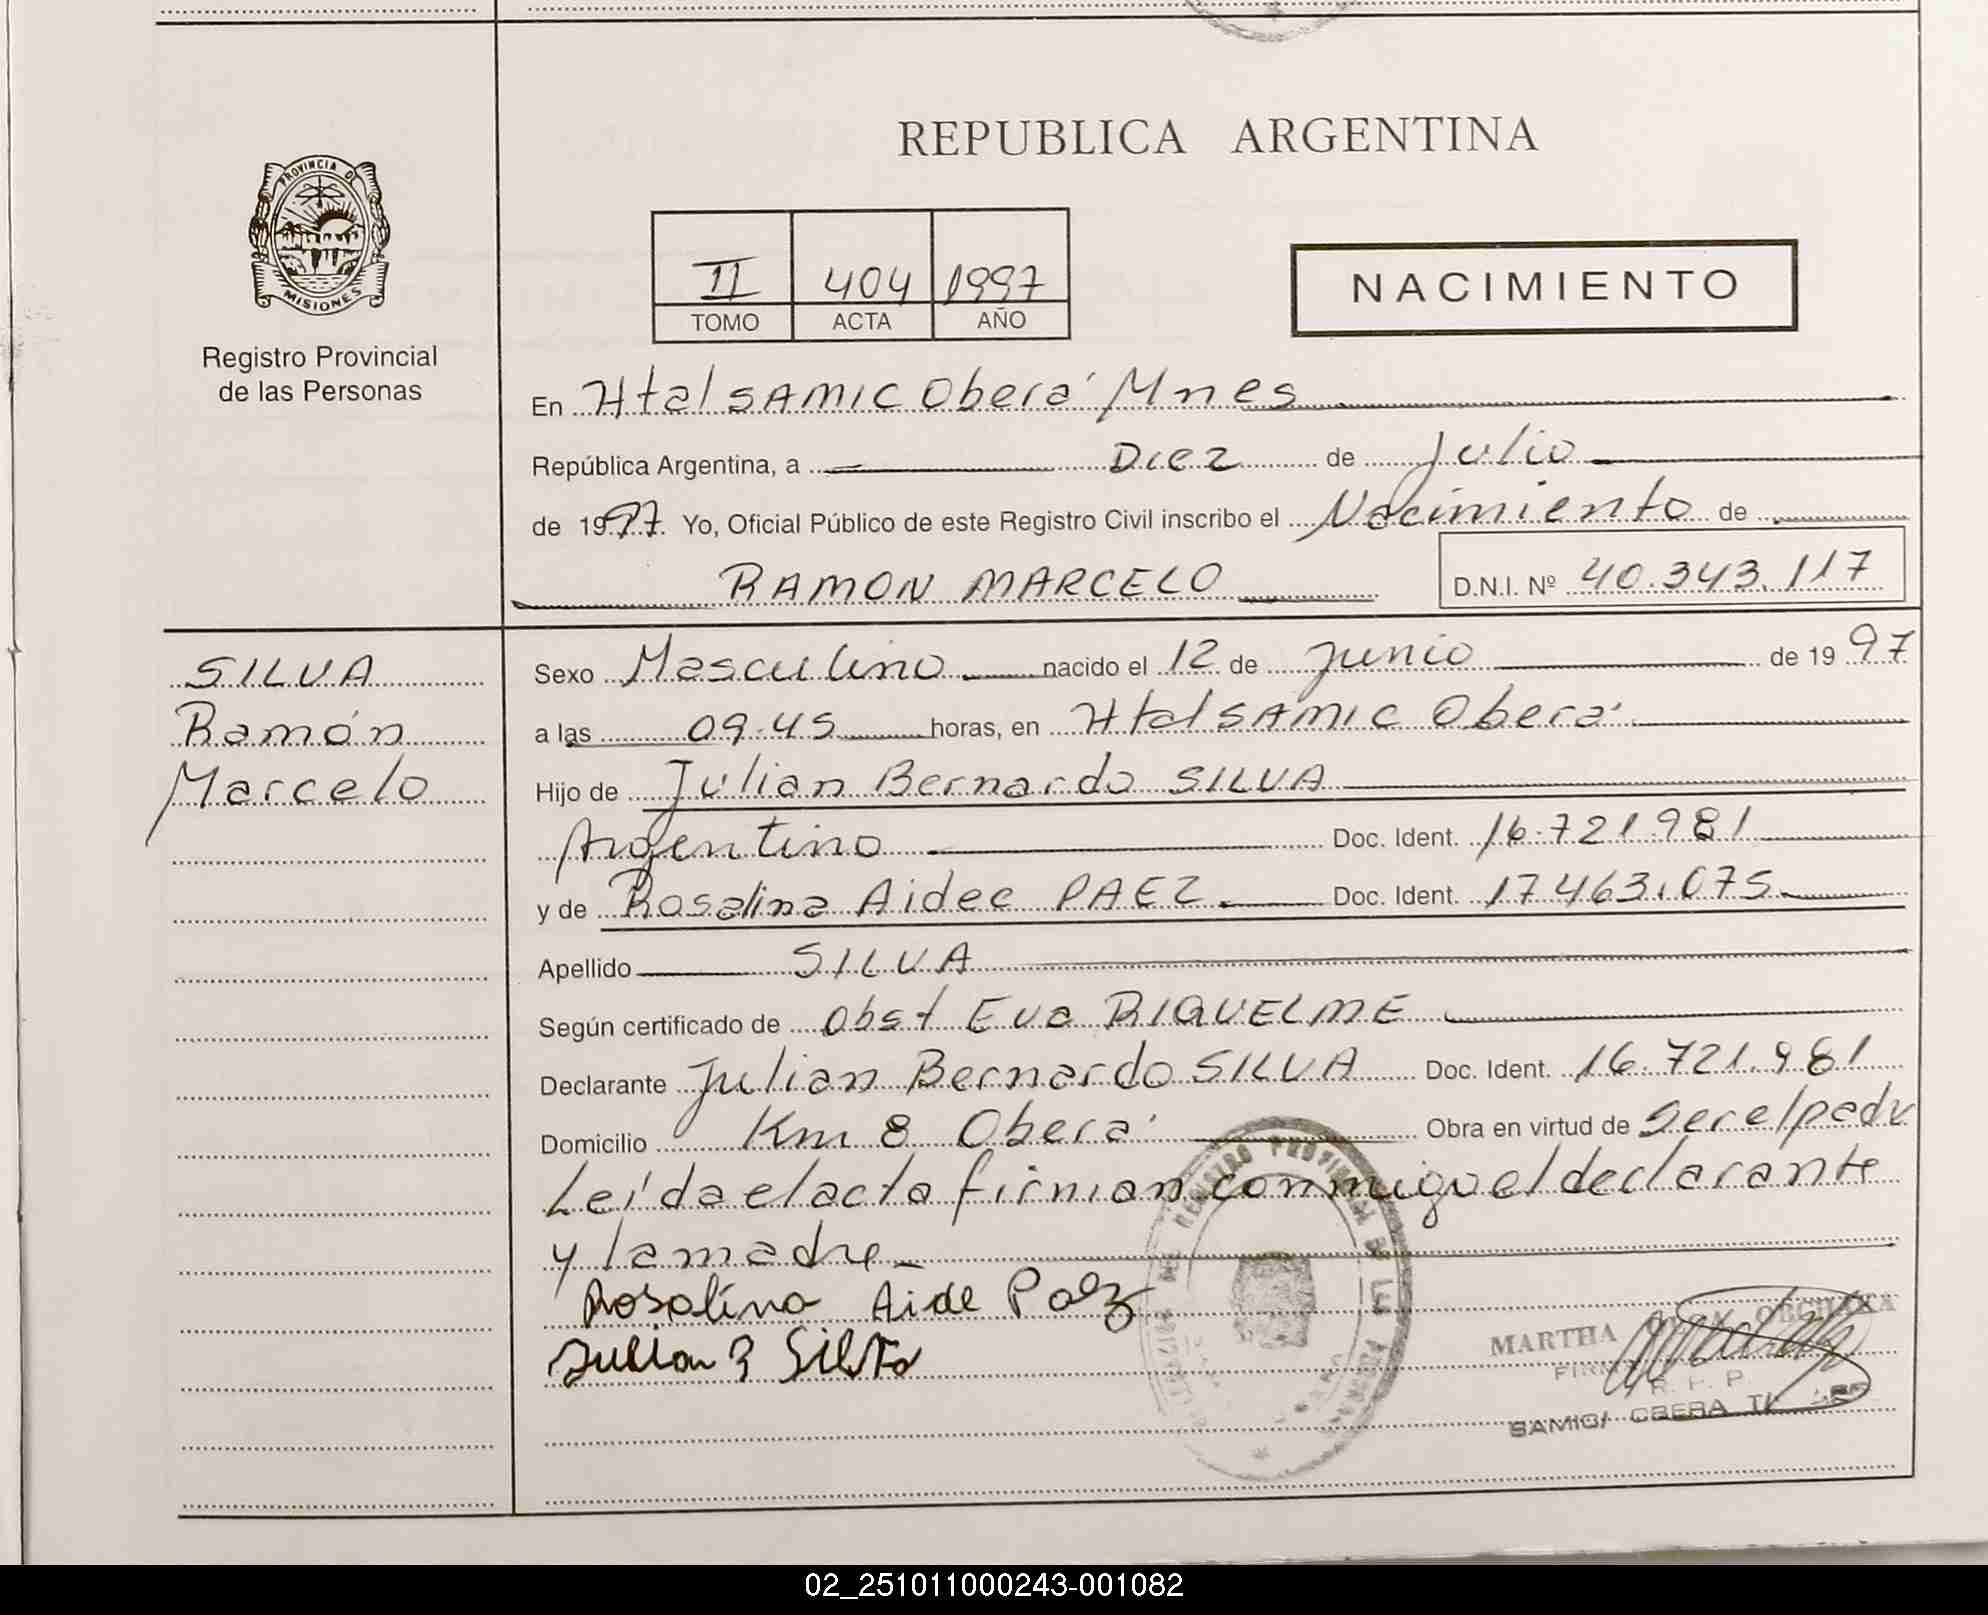 REPUBLICA ARGENTINA
PROVINCIA DE
MISIONES
Registro Provincial
de las Personas
II 404 1997
TOMO ACTA AÑO
NACIMIENTO
En Htal SAMIC Oberá Mnes
República Argentina, a Diez de Julio
de 1997. Yo, Oficial Público de este Registro Civil inscribo el Nacimiento de
RAMON MARCELO D.N.I. Nº 40.343.117
SILVA
Ramón
Marcelo
Sexo Masculino nacido el 12 de Junio de 1997
a las 09.45 horas, en Htal SAMIC Oberá
Hijo de Julian Bernardo SILVA
Argentino Doc. Ident. 16.721.981
y de Rosalina Aidee PAEZ Doc. Ident. 17.463.075
Apellido SILVA
Según certificado de Obst Eva RIQUELME
Declarante Julian Bernardo SILVA Doc. Ident. 16.721.981
Domicilio Km 8 Oberá Obra en virtud de ser el padre
Leída el acta firman conmigo el declarante
y la madre
Rosalina Aide Paez
Julian B Silva
REGISTRO PROVINCIAL DE LAS PERSONAS
MARTHA
R. P. P.
SAMIC/ OBERA
02_251011000243-001082